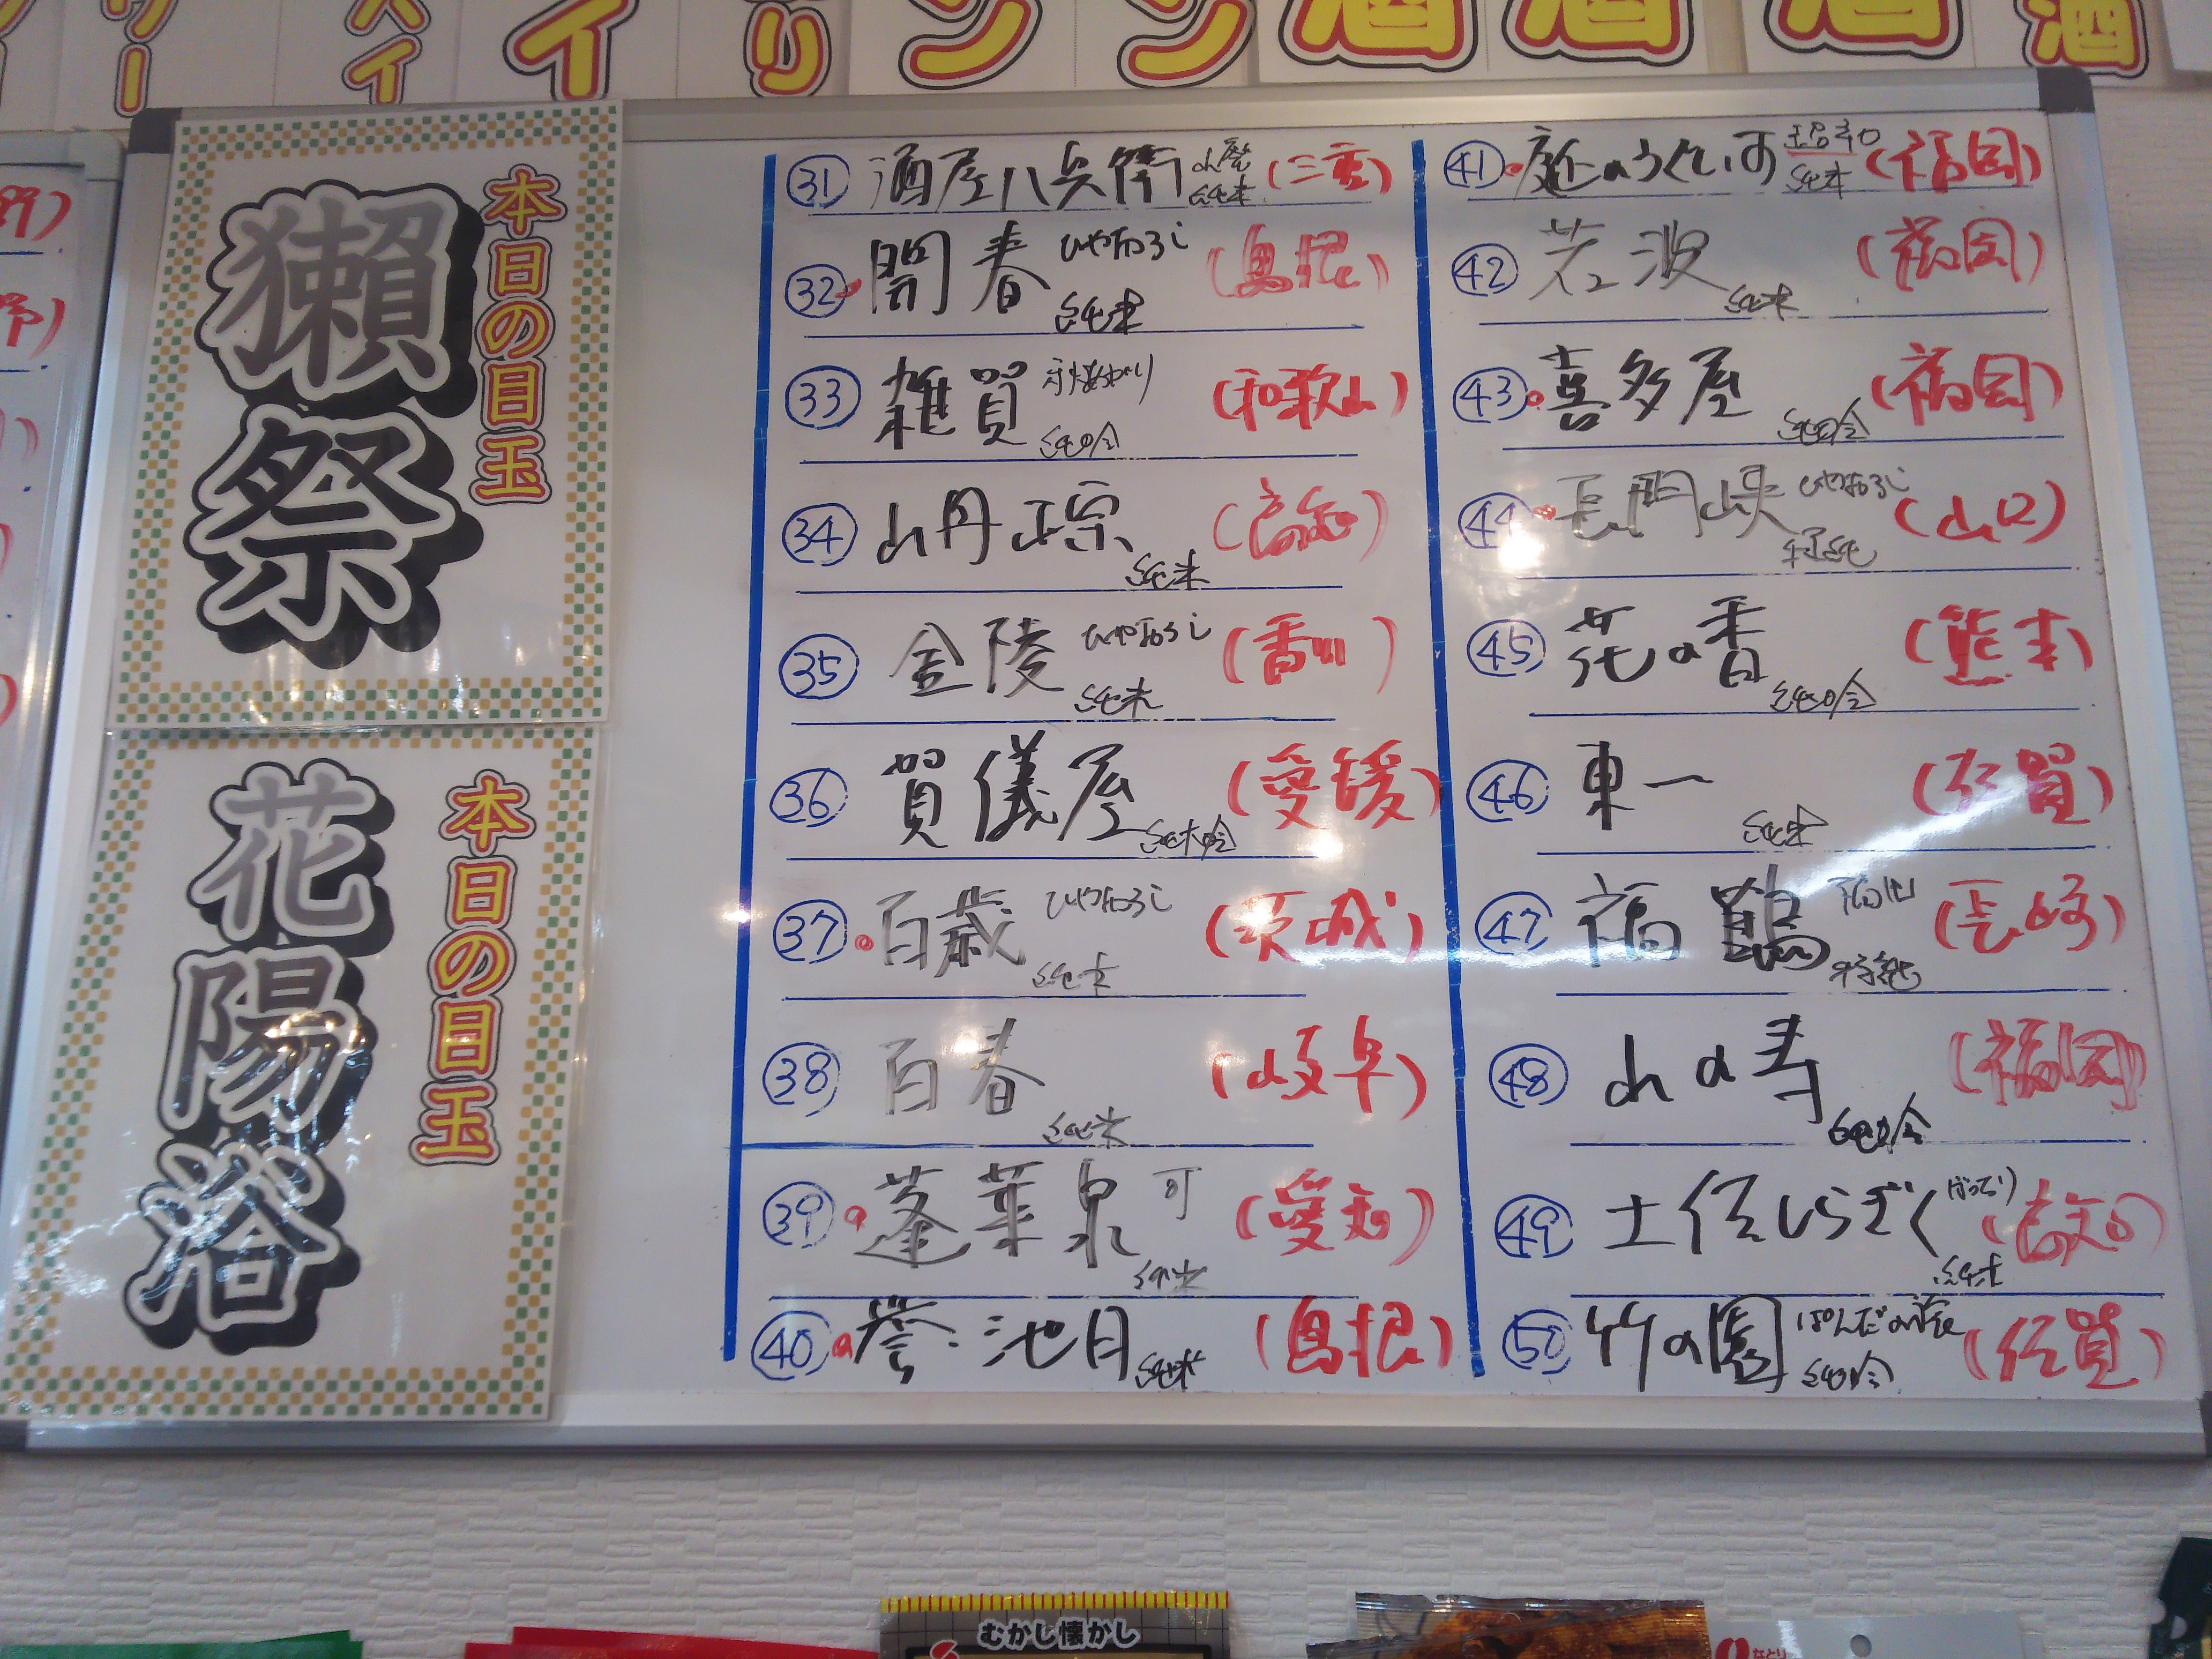 本日の目玉
獺祭
本日の目玉
花陽浴
31 酒屋八兵衛 山廃 純米 (三重)
32 開春 ひやおろし 純米 (島根)
33 雑賀 純吟 (和歌山)
34 山丹正宗 純米
35 金陵 ひやおろし 純米 (香川)
36 賀儀屋 純米吟 (愛媛)
37 百歳 ひやおろし 純米 (茨城)
38 百春 純米 (岐阜)
39 蓬莱泉 可 純米 (愛知)
40 誉池月 純米 (島根)
41 庭のうぐいす 純米 (福岡)
42 若波 純米 (福岡)
43 喜多屋 純吟 (福岡)
44 長門峡 ひやおろし 特純 (山口)
45 花の香 純吟 (熊本)
46 東一 純米 (佐賀)
47 福鶴 特純 (長崎)
48 山の寿 純吟 (福岡)
49 土佐しらぎく 純米 (高知)
50 竹の園 ぱんだの夜 純吟 (佐賀)
むかし懐かし
なとり